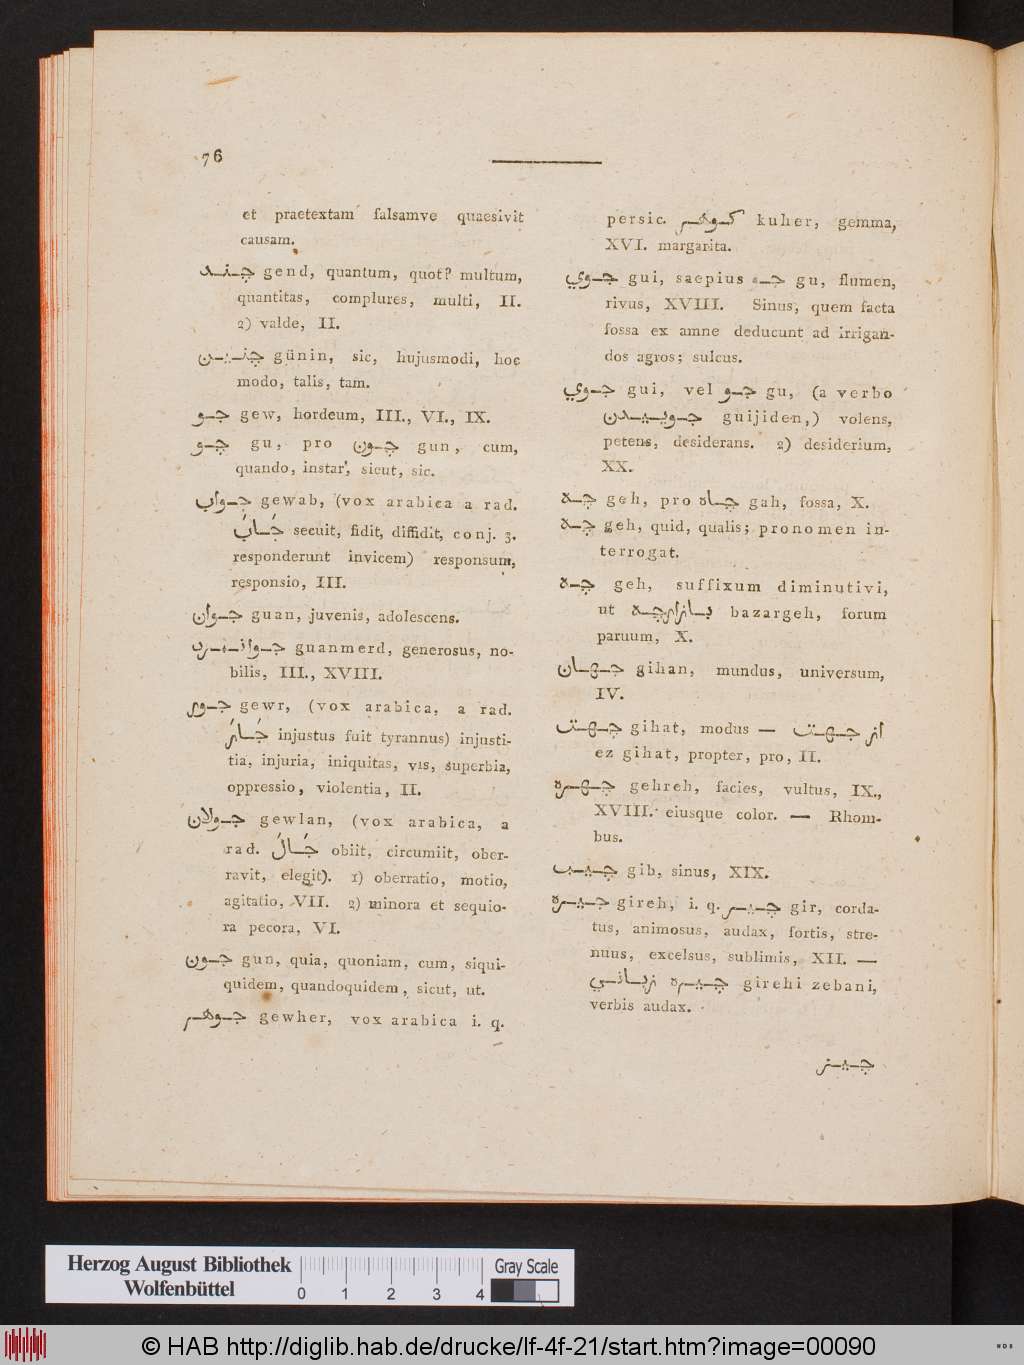 76
et praetextam falsamve quaesivit
causam.
چند gend, quantum, quot? multum,
quantitas, complures, multi, II.
2) valde, II.
چنین günin, sic, hujusmodi, hoc
modo, talis, tam.
جو gew, hordeum, III., VI., IX.
چو gu, pro چون gun, cum,
quando, instar, sicut, sic.
جواب gewab, (vox arabica a rad.
جَابَ secuit, fidit, diffidit, conj. 3.
responderunt invicem) responsum,
responsio, III.
جوان guan, juvenis, adolescens.
جوانمرد guanmerd, generosus, no-
bilis, III., XVIII.
جور gewr, (vox arabica, a rad.
جَارَ injustus fuit tyrannus) injusti-
tia, injuria, iniquitas, vis, superbia,
oppressio, violentia, II.
جولان gewlan, (vox arabica, a
rad. جَالَ obiit, circumiit, ober-
ravit, elegit). 1) oberratio, motio,
agitatio, VII. 2) minora et sequio-
ra pecora, VI.
چون gun, quia, quoniam, cum, siqui-
quidem, quandoquidem, sicut, ut.
جوهر gewher, vox arabica i. q.
persic. كوهر kuher, gemma,
XVI. margarita.
جوي gui, saepius جو gu, flumen,
rivus, XVIII. Sinus, quem facta
fossa ex amne deducunt ad irrigan-
dos agros; sulcus.
جوي gui, vel جو gu, (a verbo
جوییدن guijiden,) volens,
petens, desiderans. 2) desiderium,
XX.
چه geh, pro چاه gah, fossa, X.
چه geh, quid, qualis; pronomen in-
terrogat.
چه geh, suffixum diminutivi,
ut بازارچه bazargeh, forum
paruum, X.
جهان gihan, mundus, universum,
IV.
جهت gihat, modus — از جهت
ez gihat, propter, pro, II.
چهره gehreh, facies, vultus, IX.,
XVIII. eiusque color. — Rhom-
bus.
جیب gib, sinus, XIX.
چیره gireh, i. q. چیر gir, corda-
tus, animosus, audax, fortis, stre-
nuus, excelsus, sublimis, XII. —
چیره زباني girehi zebani,
verbis audax.
چیز
Herzog August Bibliothek
Wolfenbüttel
0 1 2 3 4
Gray Scale
© HAB http://diglib.hab.de/drucke/lf-4f-21/start.htm?image=00090